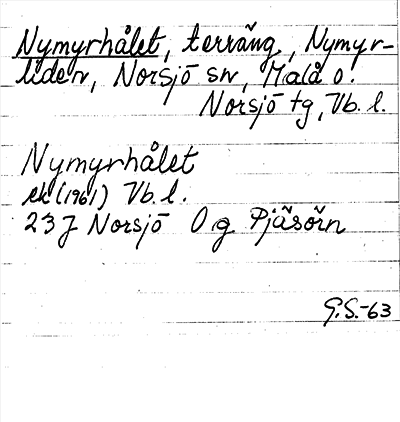 Nymyrhålet, terräng, Nymyr-
liden, Norsjö sn, Malå o.
Norsjö tg, Vb. l.
Nymyrhålet
ek (1961) Vb. l.
23 J Norsjö O g Pjäsörn
G.S.-63